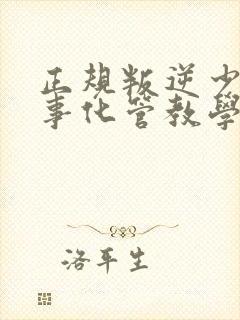 正規叛逆少
事化管教學
洛平生